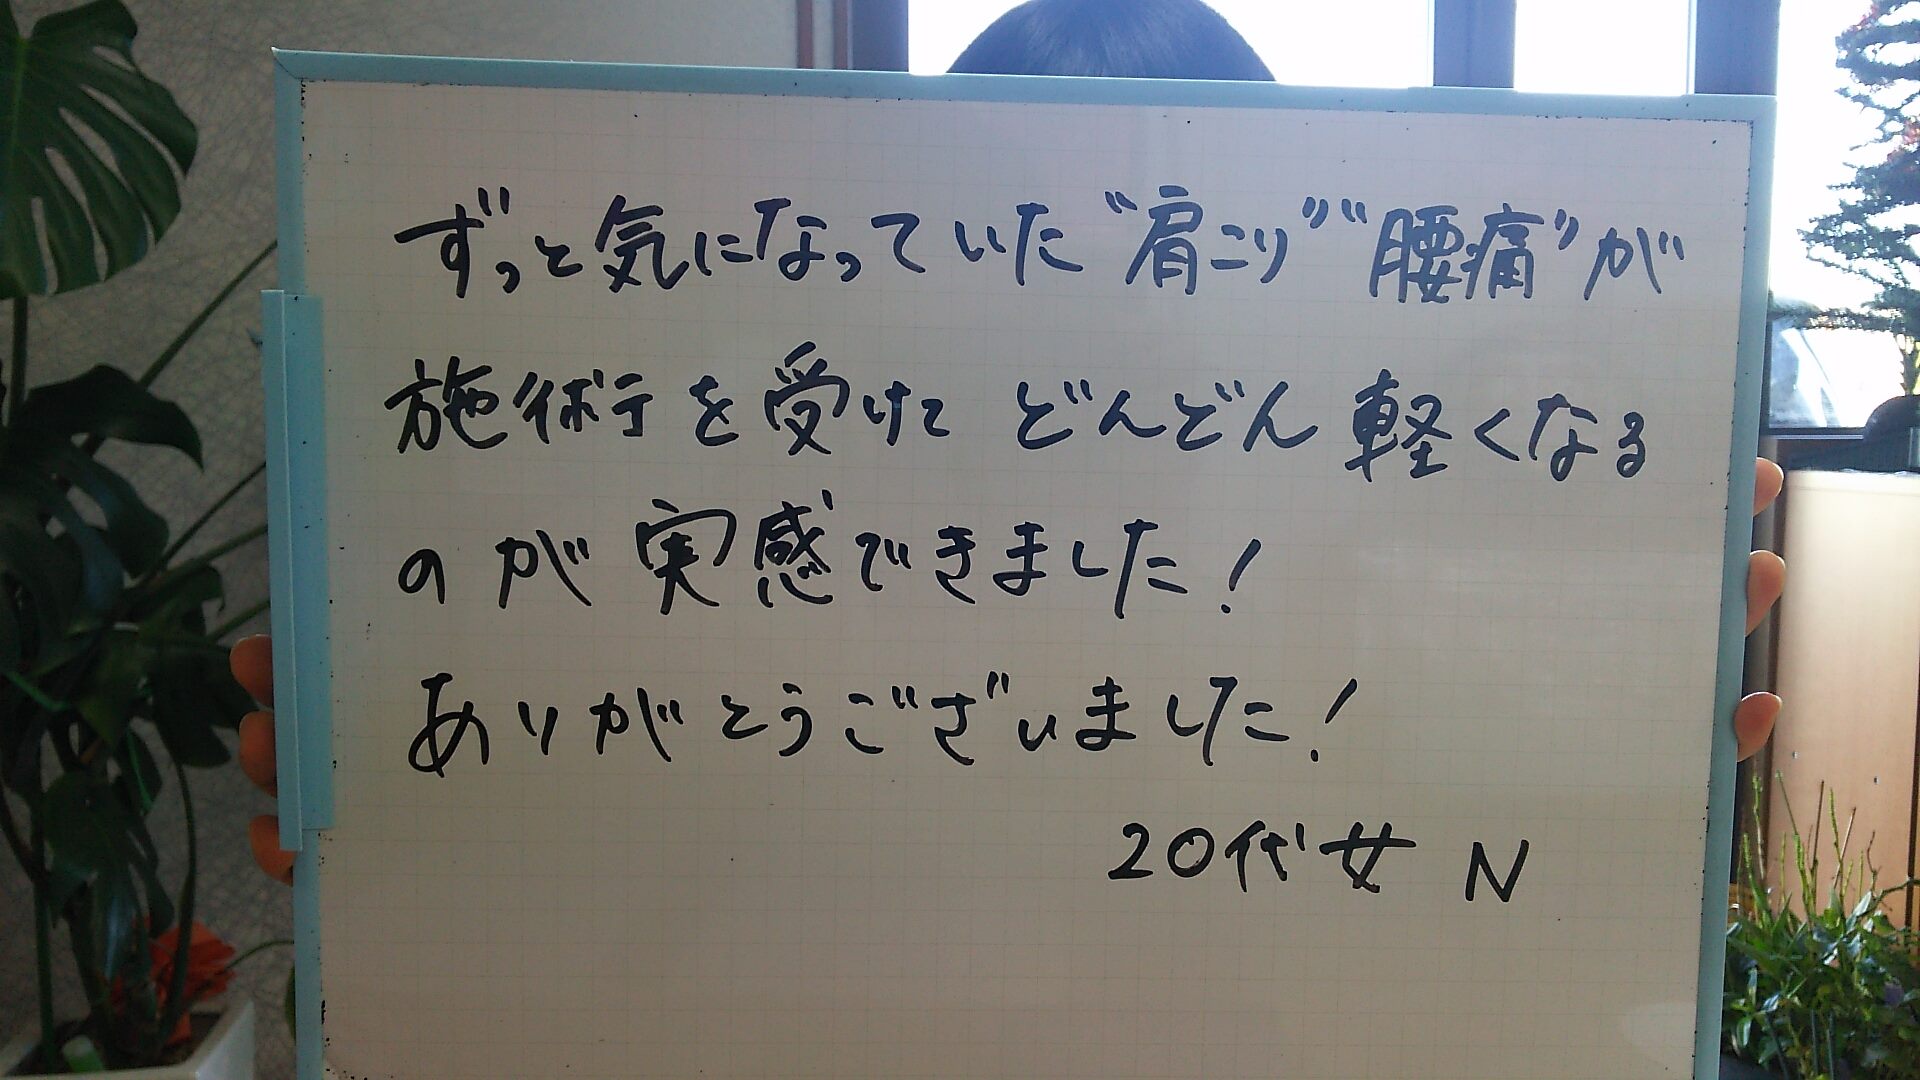 ずっと気になっていた"肩こり""腰痛"が
施術を受けて どんどん軽くなる
のが実感できました!
ありがとうございました!
20代女 N